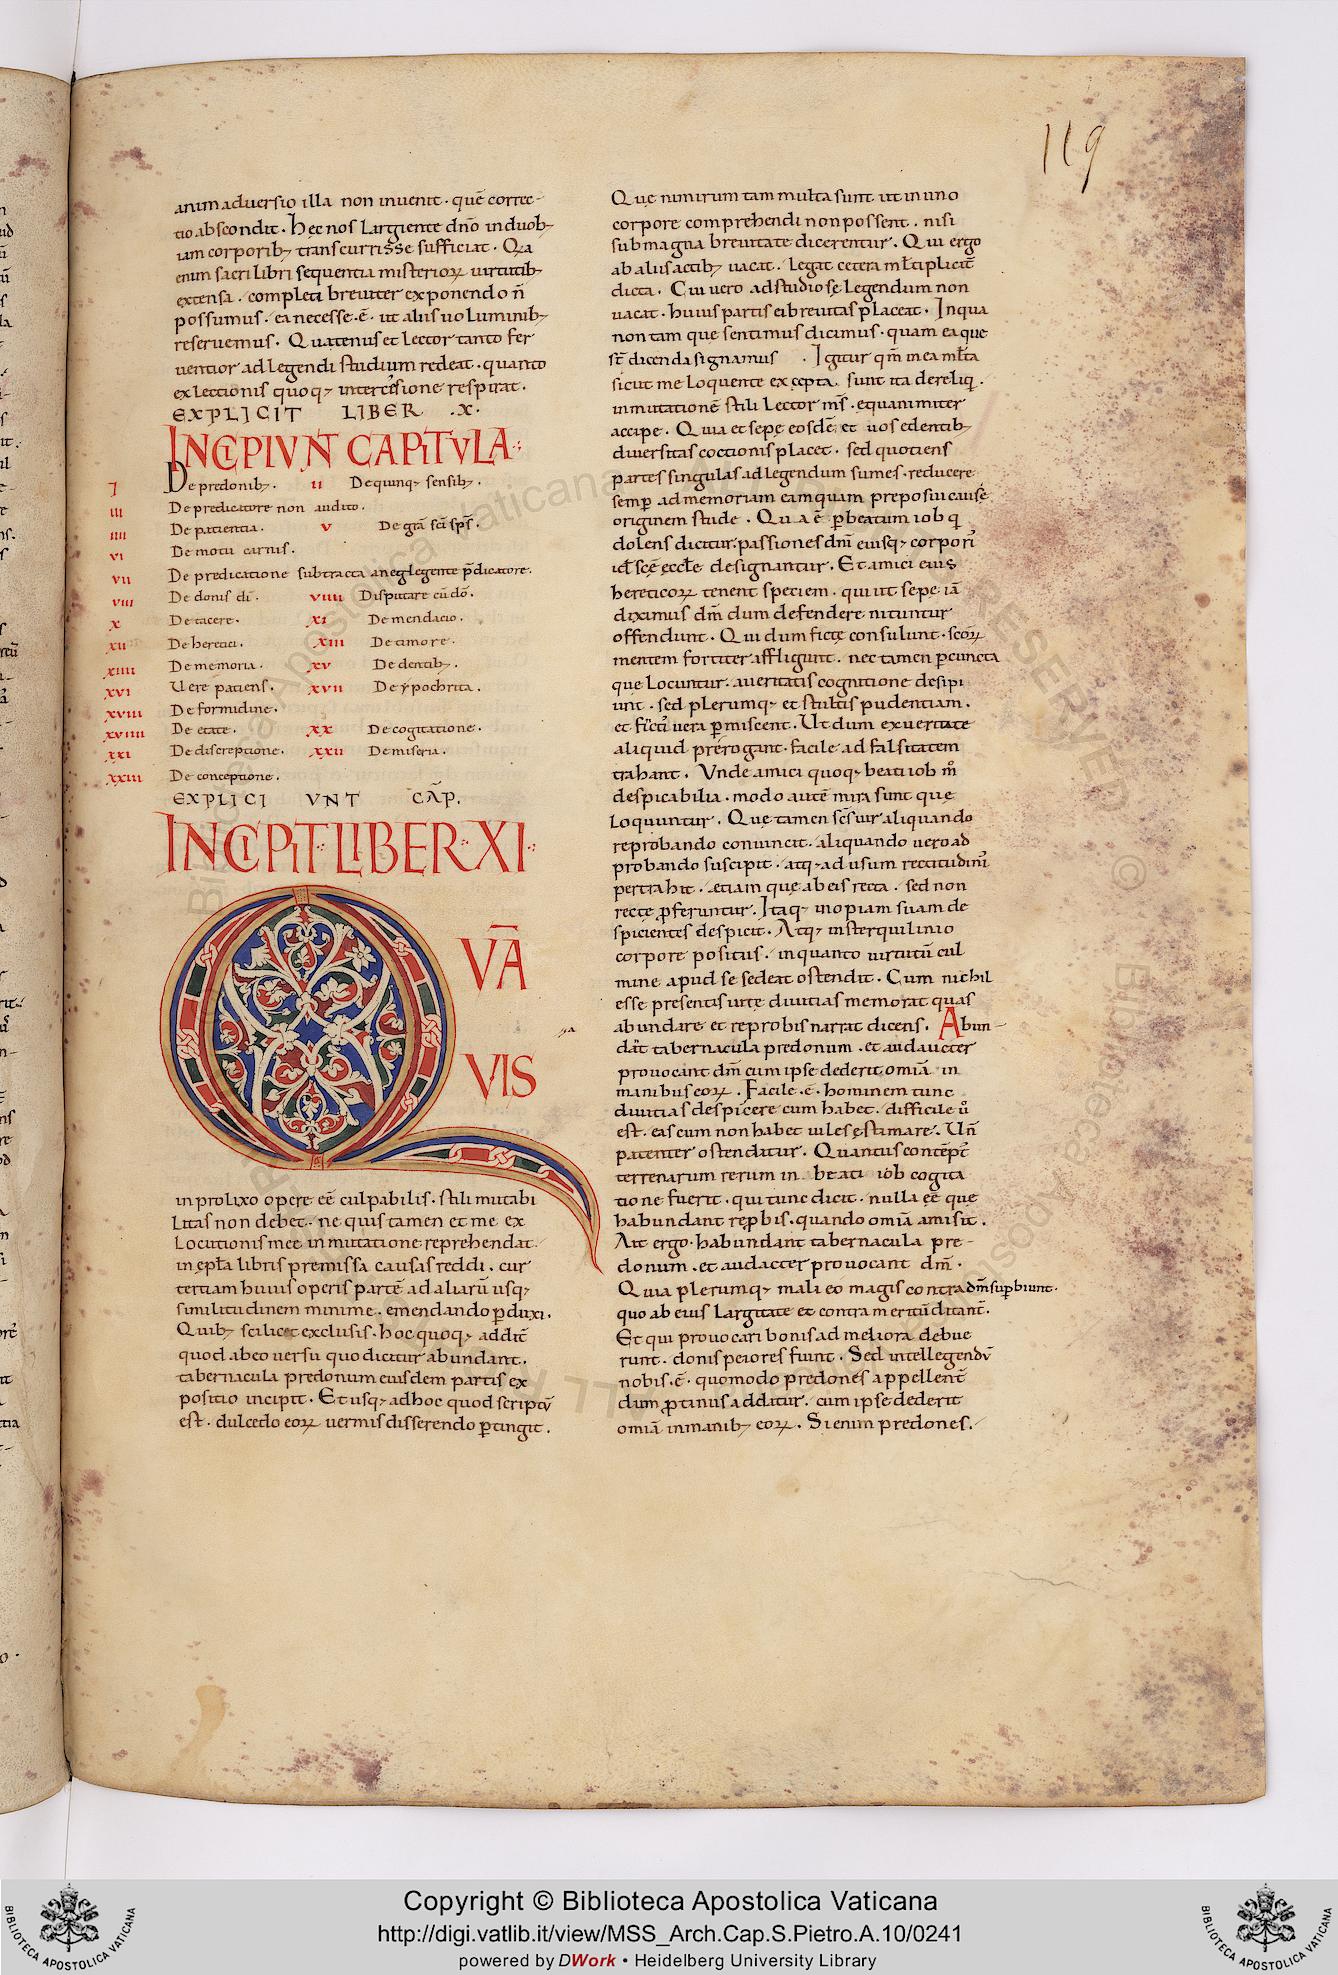 119
animaduersio illa non inuenit · quē correc-
tio abscondit · Hec nos largiente dn̄o in duob;
iam corporib; transcurrisse sufficiat · Q̄a
enim sacri libri sequentia misterioꝝ uirtutib;
extensa · completi breuiter exponendo n̄
possumus · ea necesse · ē · ut aliis uoluminib;
reseruemus · Quatenus et lector tanto fer
uentior ad legendi studium redeat · quanto
ex lectionis quoq; intercisione respirat ·
EXPLICIT LIBER · X ·
INCIPIVNT CAPITVLA
I De predonib; · II De quinq; sensib; ·
III De predicatore non audito ·
IIII De patientia · V De grā sc̄i sp̄s ·
VI De motu carnis ·
VII De predicatione subtracta a neglegente p̄dicatore ·
VIII De donis dī · VIIII Disputare cū dō ·
X De tacere · XI De mendacio ·
XII De heretici · XIII De timore ·
XIIII De memoria · XV De dentib; ·
XVI Uere patiens · XVII De ypochrita ·
XVIII De formidine ·
XVIIII De etate · XX De cogitatione ·
XXI De discreptione · XXII De miseria ·
XXIII De conceptione ·
EXPLICI VNT CAP̄ ·
INCIPIT LIBER XI
QVĀ
VIS
in prolixo opere eē culpabilis · stili mutabi
litas non debet · ne quis tamen et me ex
locutionis mee inmutatione reprehendat ·
in ep̄la libris premissa causas reddi · cur
tertiam huius operis partē ad aliarū usq;
similitudinem minime · emendando ꝑduxi ·
Quib; scilicet exclusis · hoc quoq; additē
quod ab eo uersu quo dicitur abundant ·
tabernacula predonum eiusdem partis ex
positio incipit · Et usq; ad hoc quod scriptū
est · dulcedo eoꝝ uermis disserendo ꝑtingit ·
Que nimirum tam multa sunt ut in uno
corpore comprehendi non possent · nisi
sub magna breuitate dicerentur · Qui ergo
ab aliis actib; uacat · legat cetera ml̄tipliciē
dicta · Cui uero ad studiose legendum non
uacat · huius partis ei breuitas placeat · In qua
non tam que sentimus dicimus · quam ea que
st̄ dicenda signamus · Igitur qm̄ mea ml̄ta
sicut me loquente excepta sunt ita dereliq ·
inmutationē stili lector ms̄ · equanimiter
accipe · Quia et sepe eosdē et uos edentib;
diuersitas coctionis placet · sed quotiens
partes singulas ad legendum sumes · reducere
semp̄ ad memoriam eam quam preposui cause
originem stude · Quia ē ꝑ beatum iob q
dolens dicitur passiones dn̄i eiusq; corporis
id ē sc̄e eccl̄e designantur · Et amici eius
hereticoꝝ tenent speciem · qui ut sepe iā
diximus dm̄ dum defendere nituntur
offendunt · Qui dum ficte consulunt · sc̄oꝝ
mentem fortiter affligunt · nec tamen ꝑ cuncta
que locuntur · a ueritatis cognitione desipi
unt · sed plerumq; et stultis pudentiam ·
et fictis uera ꝑmiscent · Ut dum ex ueritate
aliquid prerogant · facile ad falsitatem
trahant · Vnde amici quoq; beati iob m̊
despicabilia · modo autē mira sunt que
loquuntur · Que tamen sc̄s uir aliquando
reprobando conuincit · aliquando uero ad
probando suscipit · atq; ad usum rectitudinis
pertrahit · etiam que ab eis recta · sed non
recte ꝓferuntur · Itaq; inopiam suam de
spicientes despicit · Atq; in sterquilinio
corpore positus · in quanto uirtutū cul
mine apud se sedeat ostendit · Cum nichil
esse presentis uite diuitias memorat quas
abundare et reprobis narrat dicens · Abun-
dāt tabernacula predonum · et audacter
prouocant dm̄ cum ipse dederit omīa in
manibus eoꝝ · Facile · ē · hominem tunc
diuitias despicere cum habet · difficile ū
est · eas cum non habet uiles estimare · Un̄
patenter ostenditur · Quantus contēpt̄
terrenarum rerum in beati iob cogita
tione fuerit · qui tunc dicit · nulla eē que
habundant rep̄bis · quando omīa amisit ·
Ait ergo · habundant tabernacula pre-
donum · et audacter prouocant dm̄ ·
Quia plerumq; mali eo magis contra dm̄ suꝑbiunt ·
quo ab eius largitate et contra meritū ditant̄ ·
Et qui prouocari bonis ad meliora debue
runt · donis peiores fiunt · Sed intellegendū
nobis · ē · quomodo predones appellent̄
dum ꝓtinus additur · cum ipse dederit
omīa in manib; eoꝝ · Si enim predones ·
Copyright © Biblioteca Apostolica Vaticana
http://digi.vatlib.it/view/MSS_Arch.Cap.S.Pietro.A.10/0241
powered by DWork • Heidelberg University Library
BIBLIOTECA APOSTOLICA VATICANA
BIBLIOTECA APOSTOLICA VATICANA